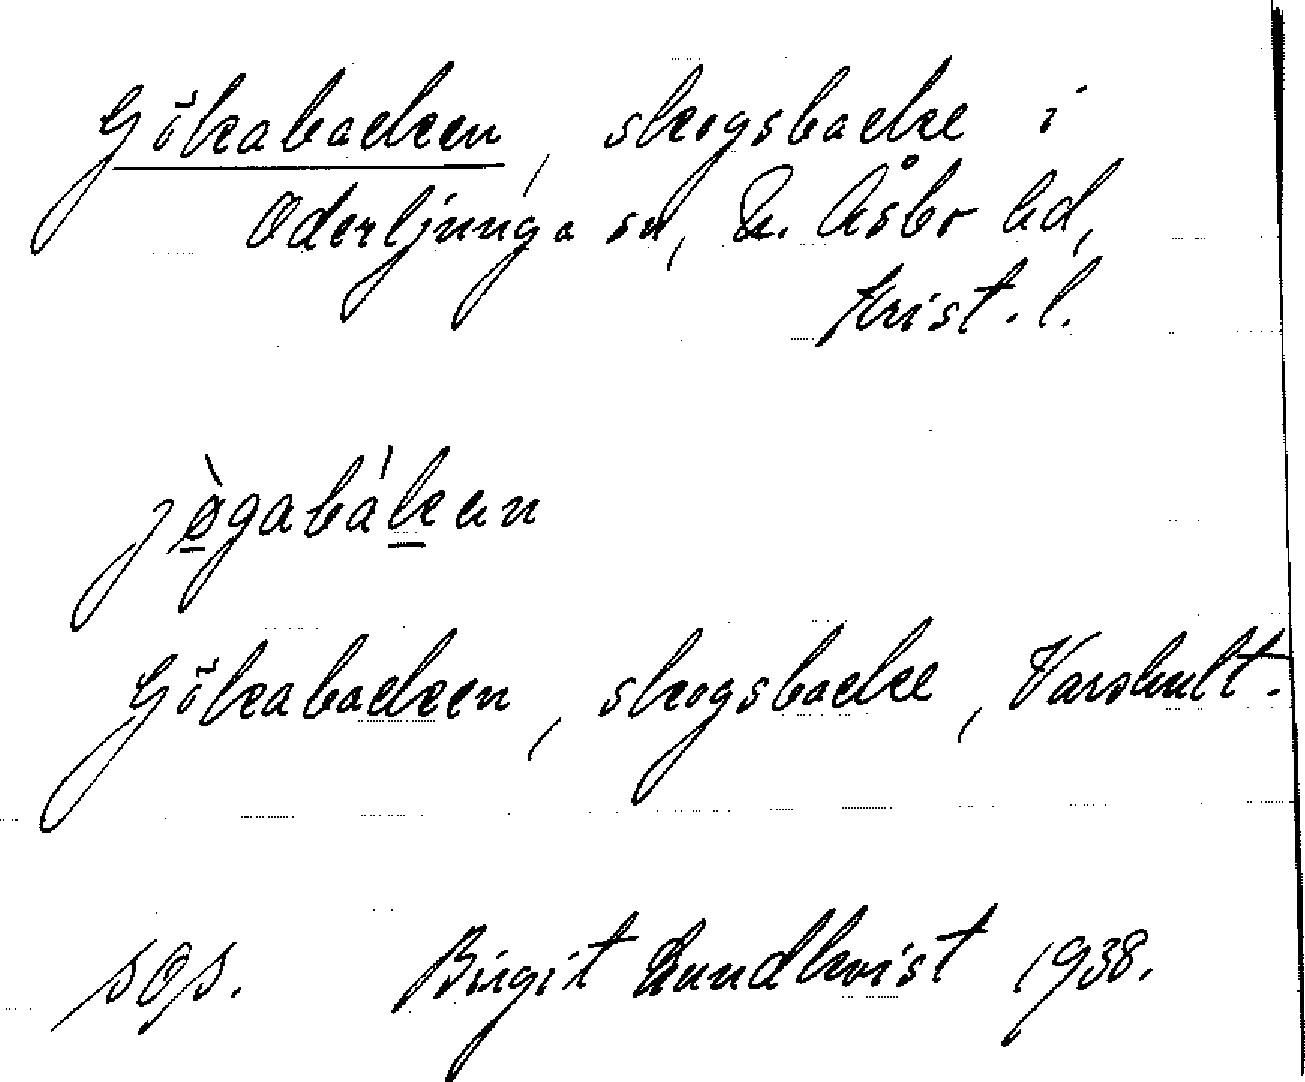 Gökabacken, skogsbacke i
Oderljunga sn, N. Åsbo hd,
Krist. l.
jø̀gabákan
Gökabacken, skogsbacke, Varshult.
Birgit Lundkvist 1938.